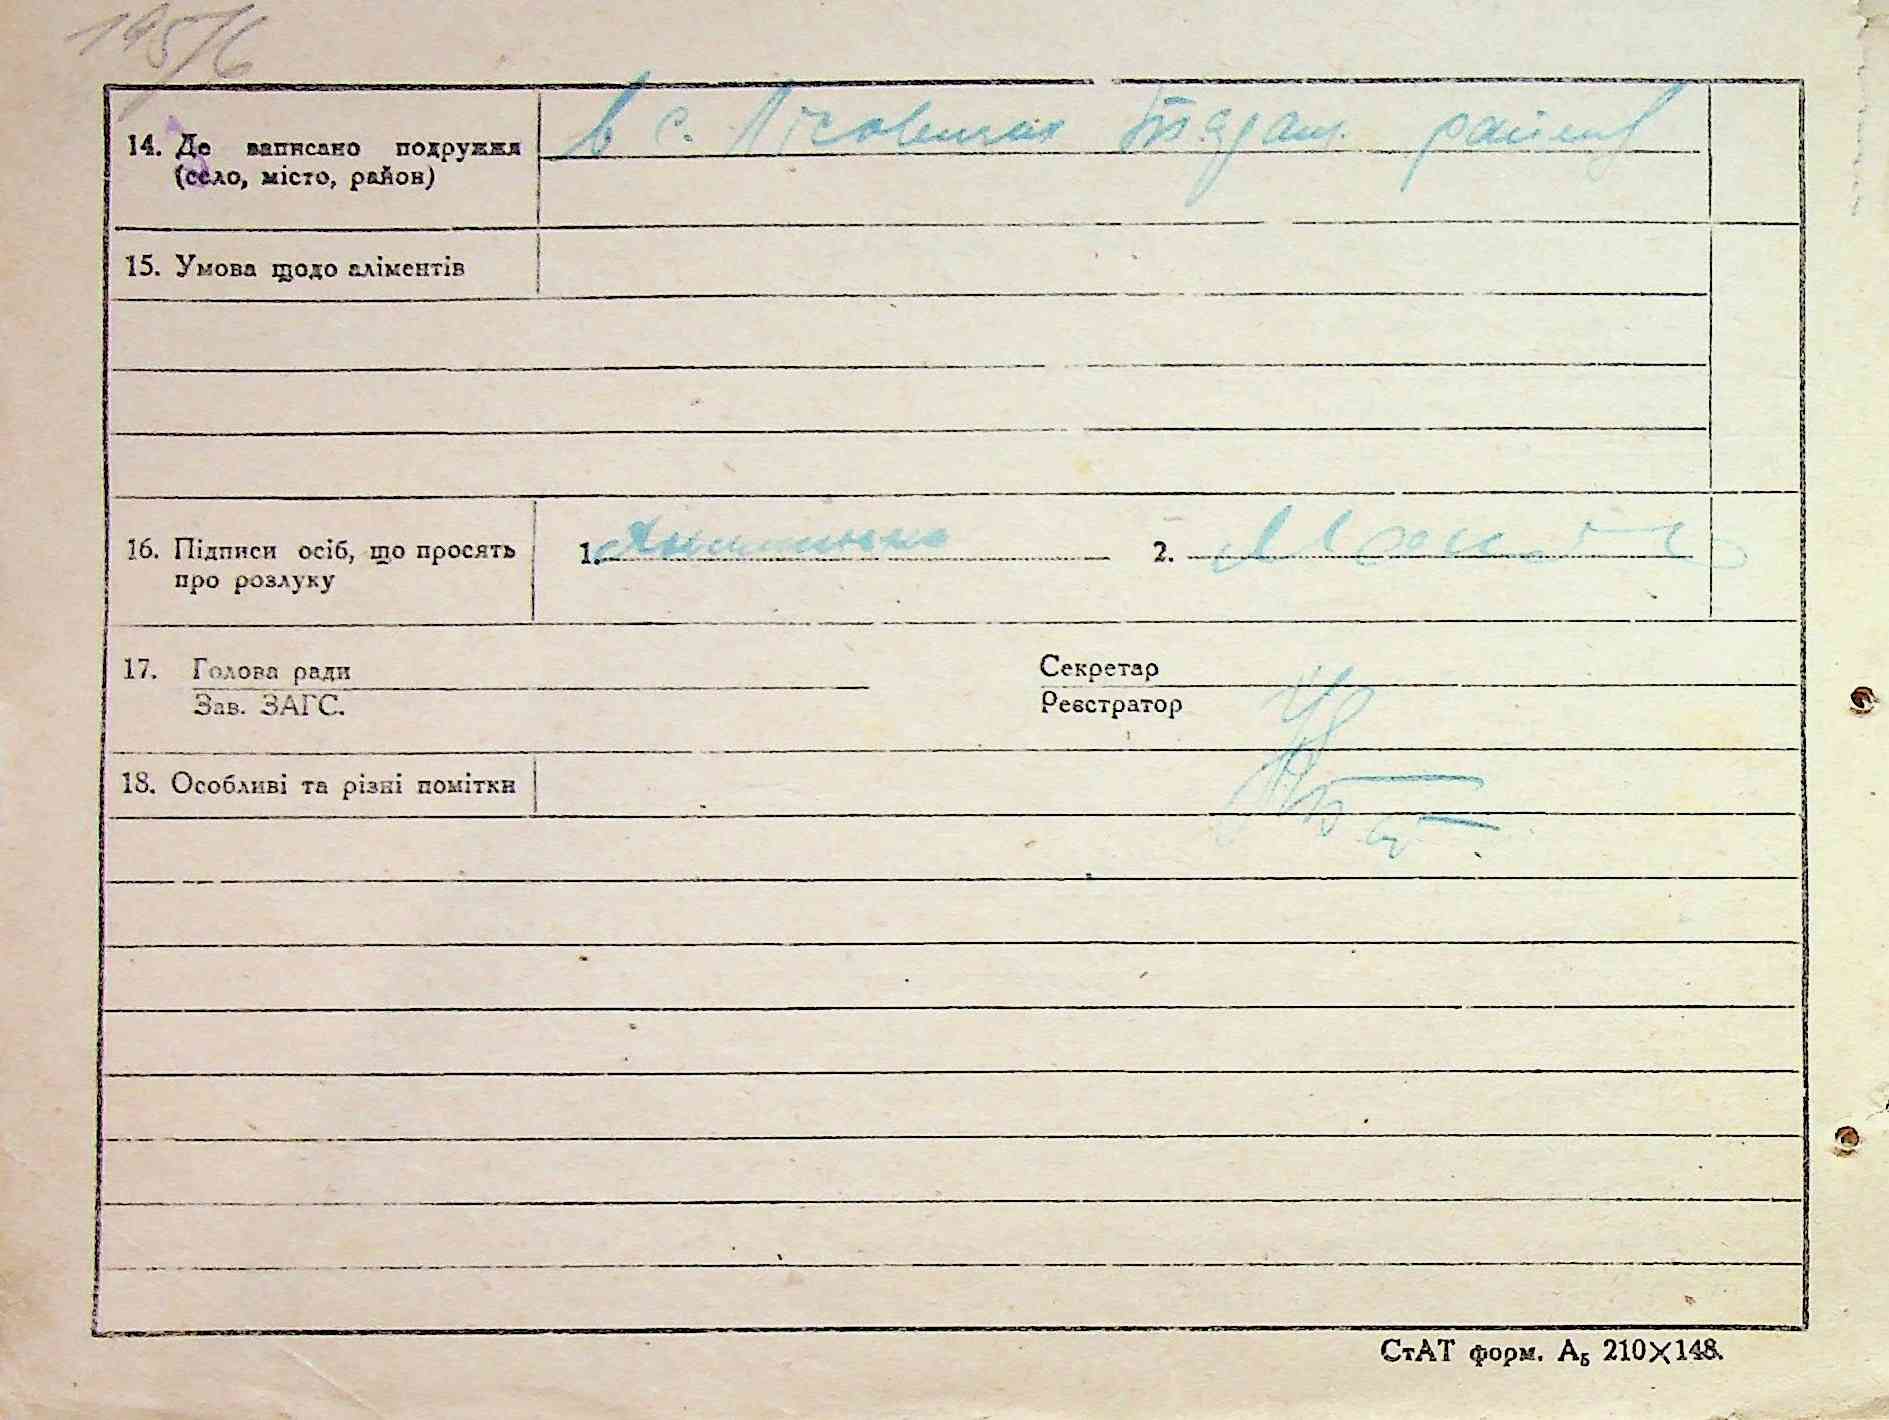 195/6
14. Де записано подружжя
(село, місто, район)
в с. Лісовичах Таращ. району
15. Умова щодо аліментів
16. Підписи осіб, що просять
про розлуку
1.
2.
17. Голова ради
Зав. ЗАГС.
Секретар
Реєстратор
18. Особливі та різні помітки
СтАТ форм. А5 210×148.